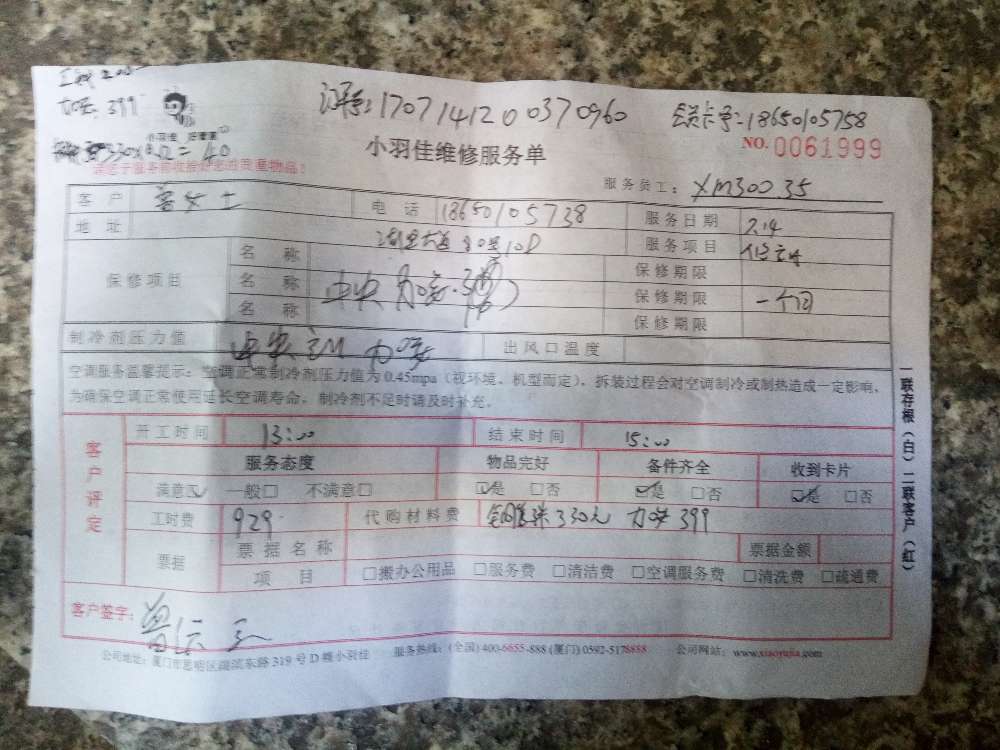 加氟: 399
订单: 1707141200370960 会员卡号: 18650105758
小羽佳 好管家
330×12%=40
小羽佳维修服务单 NO. 0061999
请您于服务前收捡好您的贵重物品!
服务员工: XM30035
客户 女士 电话 18650105738 服务日期 7.14
地址 80号10D 服务项目
保修项目 名称 保修期限
名称 中央 保修期限 一个月
名称 保修期限
制冷剂压力值 出风口温度
空调服务温馨提示: 空调正常制冷剂压力值为0.45mpa (视环境、机型而定), 拆装过程会对空调制冷或制热造成一定影响,
为确保空调正常使用延长空调寿命, 制冷剂不足时请及时补充。
客户评定
开工时间 13:00 结束时间 15:00
服务态度 物品完好 备件齐全 收到卡片
满意☑ 一般□ 不满意□ ☑是 □否 ☑是 □否 ☑是 □否
工时费 929 代购材料费 330元 加氟 399
票据 票据名称 票据金额
项目 □搬办公用品 □服务费 □清洁费 □空调服务费 □清洗费 □疏通费
客户签字:
公司地址: 厦门市思明区湖滨东路319号D幢小羽佳 服务热线: (全国) 400-6655-888 (厦门) 0592-5178888 公司网站: www.xiaoyujia.com
一联存根(白) 二联客户(红)